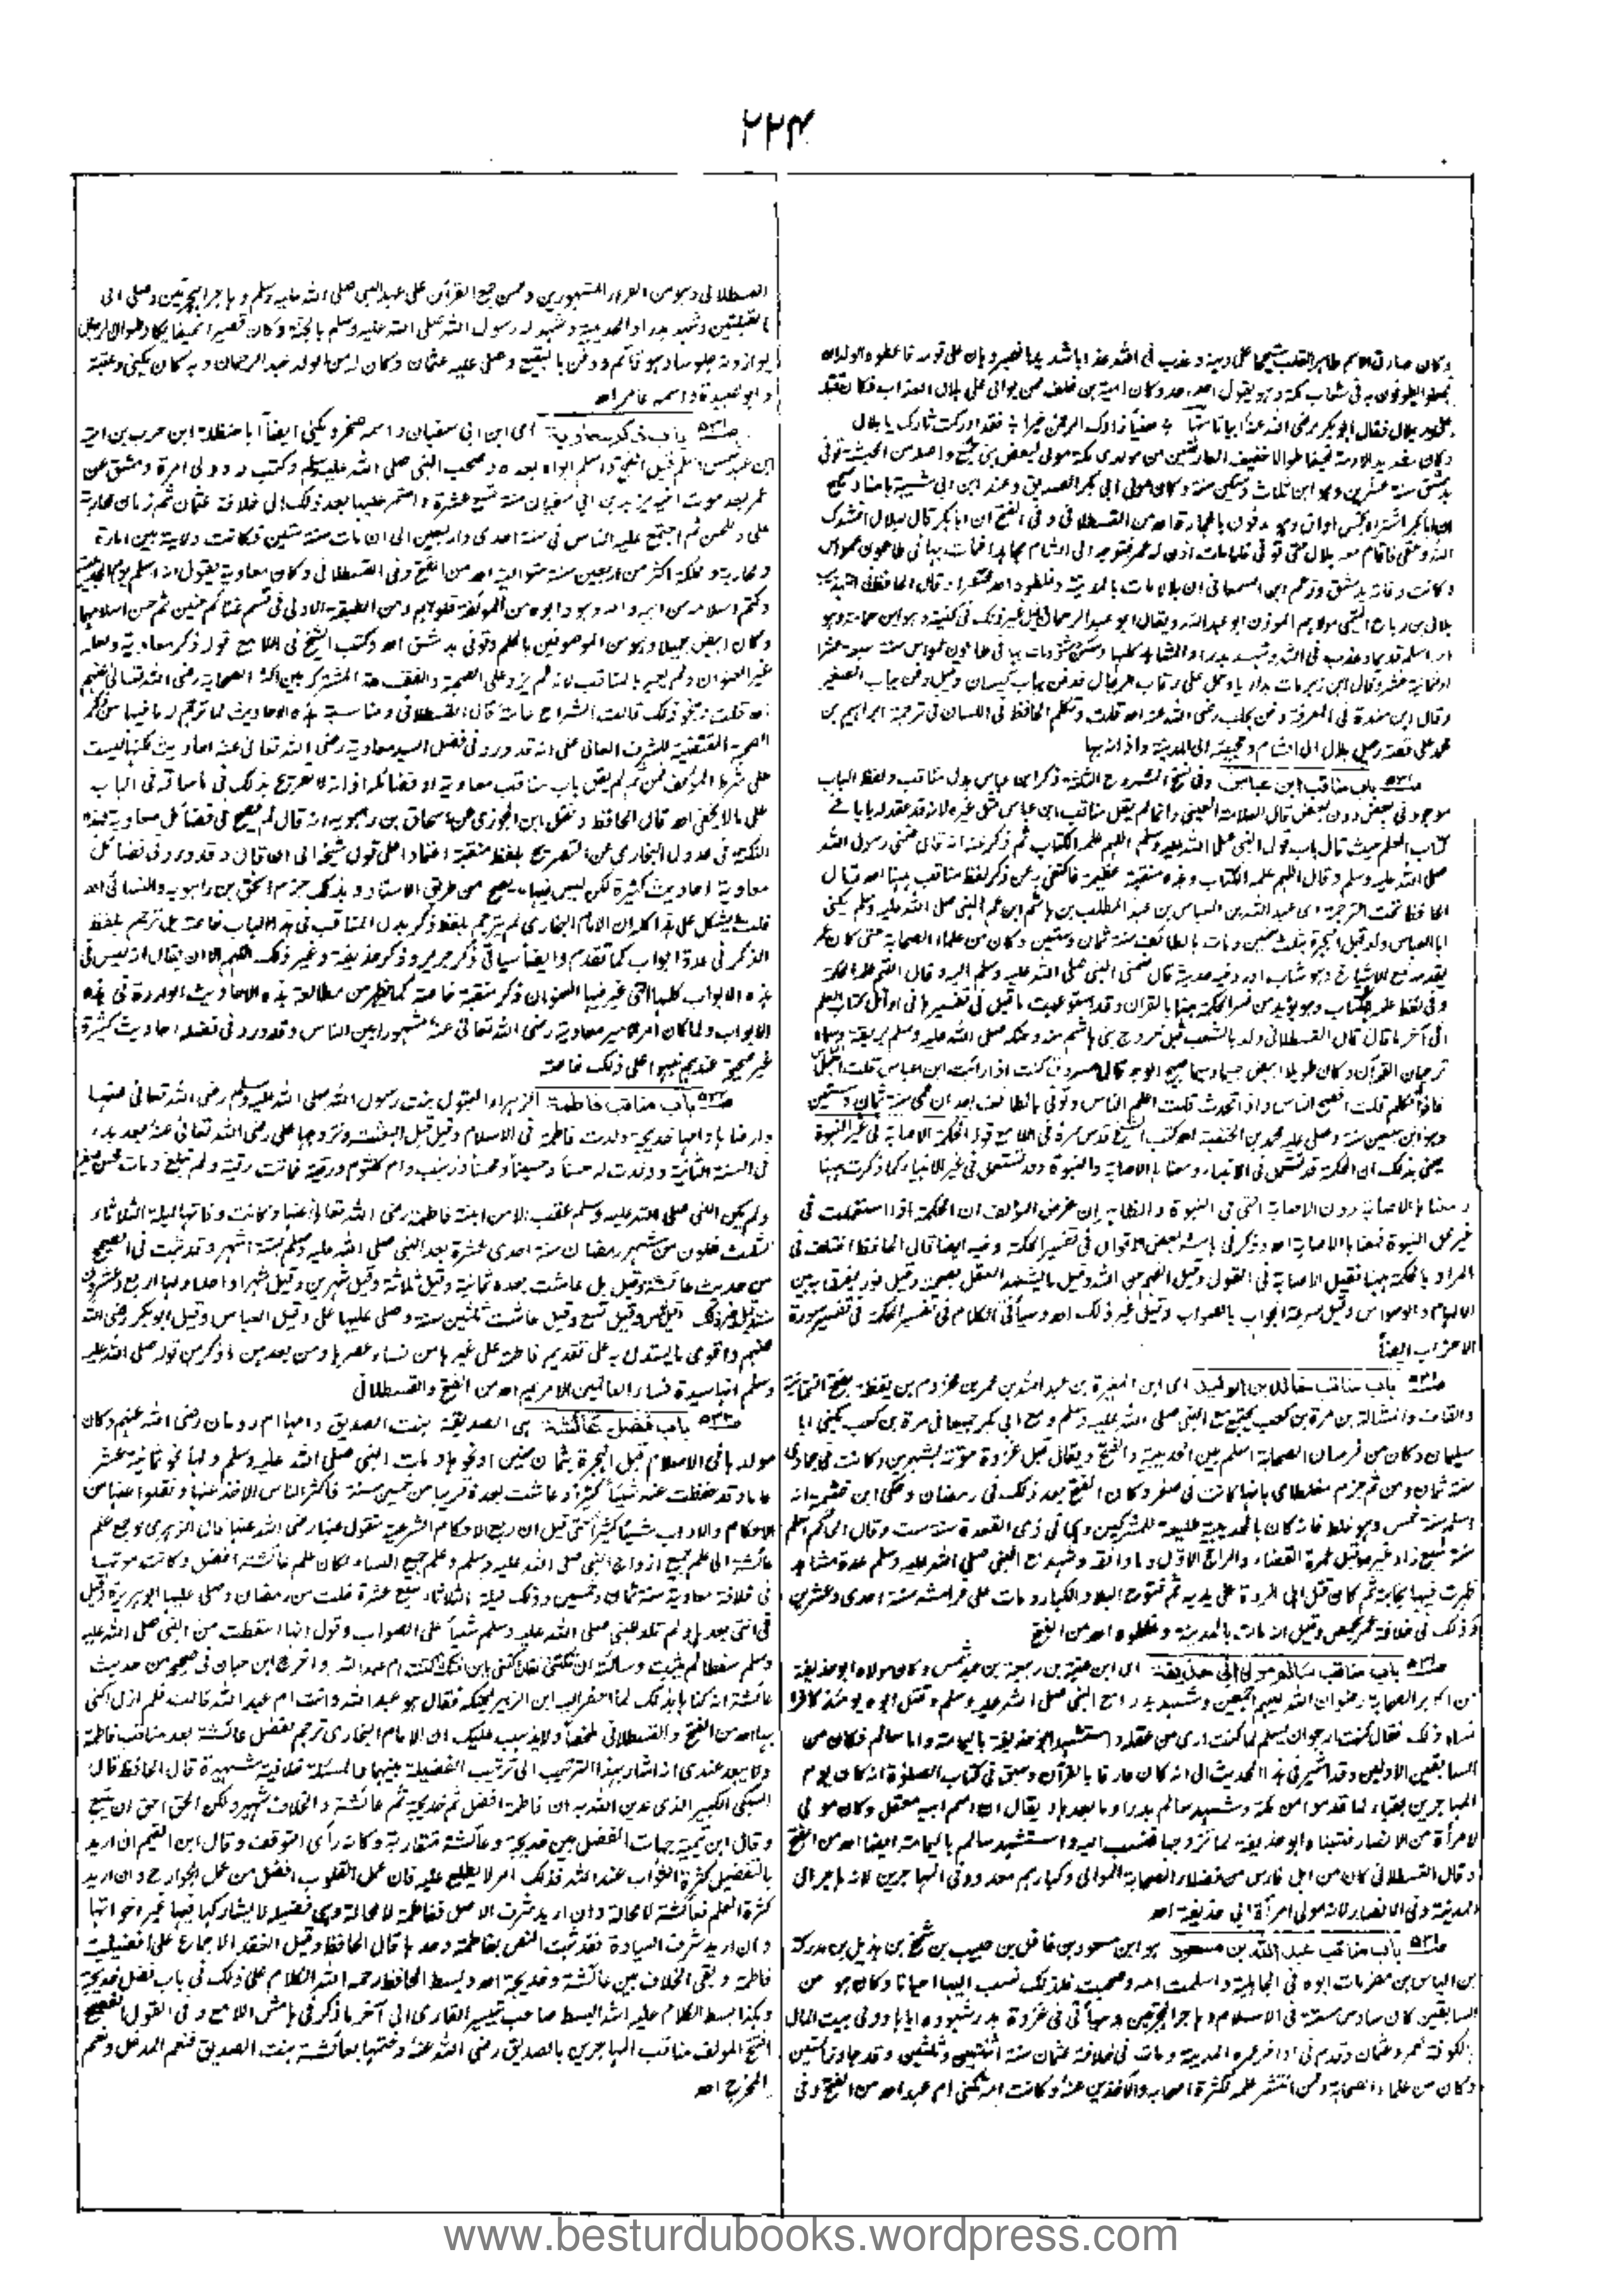 ۲۲۴
وكان صادق الاسلام طاهر القلب شحيحا على دينه وعذب في الله عذابا شديدا فصبر وهان على قومه فاعطوه الولدان
فجعلوا يطوفون به في شعاب مكة وهو يقول احد احد وكان امية بن خلف ممن يوالي على بلال العذاب فكان
بلال فقال ابو بكر رضي الله عنه ابياتا منها هنيئا زادك الرحمن خيرا فقد ادركت ثارك يا بلال
وكان شديد الادمة نحيفا طوالا خفيف العارضين من مولدي مكة مولى لبعض بني جمح واصله من الحبشة توفي
بدمشق سنة عشرين وهو ابن ثلاث وستين سنة وكان مولى ابي بكر الصديق وعند ابن ابي شيبة باسناد صحيح
ان ابا بكر اشتراه بخمس اواق وهو مدفون بالحجارة اهـ من القسطلاني وفي الفتح ان ابا بكر قال لبلال انشدك
الله وحقي فاقام معه بلال حتى توفي فلما مات اذن له عمر فتوجه الى الشام مجاهدا فمات بها في طاعون عمواس
وكانت وفاته بدمشق وزعم ابن السمعاني ان بلالا مات بالمدينة وغلطوه اهـ مختصرا وقال الحافظ في التهذيب
بلال بن رباح التيمي مولاهم المؤذن ابو عبد الله ويقال ابو عبد الرحمن وقيل غير ذلك في كنيته وهو ابن حمامة وهو
امه اسلم قديما وعذب في الله وشهد بدرا والمشاهد كلها وسكن دمشق ومات بها في طاعون عمواس سنة سبع عشرة
او ثمانية عشر وقال ابن زبر مات بداريا وحمل على رقاب الرجال فدفن بباب كيسان وقيل دفن بباب الصغير
وقال ابن مندة في المعرفة دفن بحلب رضي الله عنه اهـ قلت وتكلم الحافظ في اللسان في ترجمة ابراهيم بن
محمد على قصة رحيل بلال الى الشام ومجيئه الى المدينة واذانه بها
باب مناقب ابن عباس وفي نسخ الشروح الثلثة ذكر ابن عباس بدل مناقب ولفظ الباب
موجود في بعض دون بعض قال العلامة العيني وانما لم يقل مناقب ابن عباس مثل غيره لانه قد عقد له بابا في
كتاب العلم حيث قال باب قول النبي صلى الله عليه وسلم اللهم علمه الكتاب ثم ذكر عنه انه قال ضمني رسول الله
صلى الله عليه وسلم وقال اللهم علمه الكتاب وهذه منقبة عظيمة فاكتفى به عن ذكر لفظ مناقب ههنا اهـ قال
الحافظ تحت الترجمة اى عبد الله بن العباس بن عبد المطلب بن هاشم ابن عم النبي صلى الله عليه وسلم يكنى
ابا العباس ولد قبل الهجرة بثلث سنين ومات بالطائف سنة ثمان وستين وكان من علماء الصحابة حتى كان عمر
يقدمه مع الاشياخ وهو شاب اورد فيه حديثه قال ضمني النبي صلى الله عليه وسلم اليه وقال اللهم علمه الحكمة
وفي لفظ علمه الكتاب وهو يؤيد من فسر الحكمة ههنا بالقران وقد استوعبت ما قيل في تفسيرها في اوائل كتاب العلم
الى آخر ما قال قال القسطلاني ولد بالشعب قبل خروج بني هاشم منه وحنكه صلى الله عليه وسلم بريقه وسماه
ترجمان القرآن وكان طويلا ابيض جسيما وسيما صبيح الوجه قال مسروق كنت اذا رأيت ابن عباس قلت اجمل
فاذا تكلم قلت افصح الناس واذا تحدث قلت اعلم الناس وتوفي بالطائف بعد ان عمي سنة ثمان وستين
وهو ابن سبعين سنة وصلى عليه محمد بن الحنفية اهـ كتب الشيخ قدس سره في اللامع قوله الحكمة الاصابة في غير النبوة
يعني بذلك ان الحكمة قد تستعمل في الانبياء ومعناها الاصابة والنبوة وقد تستعمل في غير الانبياء كما ذكرت ههنا
ومعناها الاصابة دون الاصابة التي في النبوة والظاهر ان غرض المؤلف ان الحكمة اذا استعملت في
غير محل النبوة فمعناها الاصابة اهـ وذكر في هامشه بعض الاقوال في تفسير الحكمة وفيه ايضا قال الحافظ اختلف في
المراد بالحكمة ههنا فقيل الاصابة في القول وقيل الفهم عن الله وقيل ما يشهد العقل بصحته وقيل نور يفرق به بين
الالهام والوسواس وقيل سرعة الجواب بالصواب وقيل غير ذلك اهـ وسيأتي الكلام في تفسير الحكمة في تفسير سورة
الاحزاب ايضاً
باب مناقب خالد بن الوليد اى ابن المغيرة بن عبد الله بن عمر بن مخزوم بن يقظة بفتح التحتانية
والقاف والمشالة بن مرة بن كعب يجتمع مع النبي صلى الله عليه وسلم ومع ابي بكر جميعا في مرة بن كعب يكنى ابا
سليمان وكان من فرسان الصحابة اسلم بين الحديبية والفتح ويقال قبل غزوة مؤتة بشهرين وكانت في جمادى
سنة ثمان ومن ثم جزم مغلطاي بانها كانت في صفر وكان الفتح بعد ذلك في رمضان وحكى ابن خيثمة انه
اسلم سنة خمس وهو غلط فانه كان بالحديبية طليعة للمشركين وهي في ذي القعدة سنة ست وقال الحاكم اسلم
سنة سبع زاد غيره وقيل عمرة القضاء والراجح الاول وما وافقه وشهد مع النبي صلى الله عليه وسلم عدة مشاهد
ظهرت فيها نجابته ثم كان قتل اهل الردة على يديه ثم فتوح البلاد الكبار ومات على فراشه سنة احدى وعشرين
وذلك في خلافة عمر بحمص وقيل انه مات بالمدينة وغلطوه اهـ من الفتح
باب مناقب سالم مولى ابي حذيفة اى ابن عتبة بن ربيعة بن عبد شمس وكان مولاه ابو حذيفة
من اكابر الصحابة رضوان الله عليهم اجمعين وشهد بدرا مع النبي صلى الله عليه وسلم وقتل ابوه يومئذ كافرا
فساءه ذلك فقال كنت ارجو ان يسلم لما كنت ارى من عقله واستشهد ابو حذيفة باليمامة واما سالم فكان من
السابقين الاولين وقد اشير في هذا الحديث الى انه كان عارفا بالقرآن وسبق في كتاب الصلوة انه كان يؤم
المهاجرين بقباء لما قدموا من مكة وشهد سالم بدرا وما بعدها ويقال ان اسم ابيه معقل وكان مولى
لامرأة من الانصار فتبناه ابو حذيفة لما تزوجها فنسب اليه واستشهد سالم باليمامة ايضا اهـ من الفتح
وقال القسطلاني كان من اهل فارس من فضلاء الصحابة الموالي وكبارهم معدود في المهاجرين لانه هاجر الى
المدينة وفي الانصار لانه مولى امرأة ابي حذيفة اهـ
باب مناقب عبد الله بن مسعود هو ابن مسعود بن غافل بن حبيب بن شمخ بن هذيل بن مدركة
بن الياس بن مضر مات ابوه في الجاهلية واسلمت امه وصحبت فلذلك نسب اليها احيانا وكان هو من
السابقين كان سادس ستة في الاسلام وهاجر الهجرتين وسيأتي في غزوة بدر شهوده اياها وولي بيت المال
بالكوفة لعمر وعثمان وقدم في اواخر عمره المدينة ومات في خلافة عثمان سنة اثنتين وثلثين وقد جاوز الستين
وكان من علماء الصحابة وممن انتشر علمه لكثرة اصحابه والآخذين عنه وكانت امه تكنى ام عبد اهـ من الفتح وفي
القسطلاني وهو من القراء المشهورين وممن جمع القرآن على عهد النبي صلى الله عليه وسلم وهاجر الهجرتين وصلى الى
القبلتين وشهد بدرا والحديبية وشهد له رسول الله صلى الله عليه وسلم بالجنة وكان قصيرا نحيفا يكاد طوال الرجال
يوازونه جلوسا وهو قائم ودفن بالبقيع وصلى عليه عثمان وكان له من الولد عبد الرحمان وبه كان يكنى وعتبة
وابو عبيدة واسمه عامر اهـ
باب ذكر معاوية اى ابن ابي سفيان واسمه صخر ويكنى ايضاً ابا حنظلة ابن حرب بن امية
ابن عبد شمس اسلم قبل الفتح واسلم ابواه بعده وصحب النبي صلى الله عليه وسلم وكتب له وولي امرة دمشق عن
عمر بعد موت اخيه يزيد بن ابي سفيان سنة تسع عشرة واستمر عليها بعد ذلك الى خلافة عثمان ثم زمان محاربته
لعلي وللحسن ثم اجتمع عليه الناس في سنة احدى واربعين الى ان مات سنة ستين فكانت ولايته بين امارة
ومحاربة ومملكة اكثر من اربعين سنة متوالية اهـ من الفتح وفي القسطلاني وكان معاوية يقول انه اسلم يوم الحديبية
وكتم اسلامه من ابيه وامه وهو وابوه من المؤلفة قلوبهم ومن الطبقة الاولى في قسم غنائم حنين ثم حسن اسلامهما
وكان ابيض جميلا وهو من الموصوفين بالحلم وتوفي بدمشق اهـ وكتب الشيخ في اللامع قوله ذكر معاوية ولعله
غير العنوان ولم يعبر بالمناقب لانه لم يزد على الصحبة والفقه المشترك بين اكثر الصحابة رضي الله تعالى عنهم
اهـ قلت وبنحو ذلك قالت الشراح عامة قال القسطلاني ومناسبة هذه الاحاديث لما ترجم له ما فيها من ذكر
الصحبة المقتضية للشرف العالي على انه قد ورد في فضل السيد معاوية رضي الله تعالى عنه احاديث لكنها ليست
على شرط المؤلف فمن ثم لم يقل باب مناقب معاوية او فضائله اذ انه لا تصريح بذلك في ما ساقه في الباب
على ما لا يخفى اهـ قال الحافظ ونقل ابن الجوزي عن اسحاق بن راهويه انه قال لم يصح في فضائل معاوية فهذه
النكتة في عدول البخاري عن التصريح بلفظ منقبة اعتمادا على قول شيخه الى ان قال وقد ورد في فضائل
معاوية احاديث كثيرة لكن ليس فيها ما يصح من طريق الاسناد وبذلك جزم اسحق بن راهويه والنسائي اهـ
قلت يشكل على هذا كله ان الامام البخاري لم يترجم بلفظ ذكر بدل المناقب في هذا الباب خاصة بل ترجم بلفظ
الذكر في عدة ابواب كما تقدم وايضا سيأتي ذكر جرير وذكر حذيفة وغير ذلك اللهم الا ان يقال انه ليس في
هذه الابواب كلها التي غير فيها العنوان ذكر منقبة خاصة كما يظهر من مطالعة هذه الاحاديث الواردة في هذه
الابواب ولما كان امر الامير معاوية رضي الله تعالى عنه مشهورا بين الناس وقد ورد في فضله احاديث كثيرة
غير صحيحة عندهم نبهوا على ذلك خاصة
باب مناقب فاطمة الزهراء البتول بنت رسول الله صلى الله عليه وسلم رضي الله تعالى عنها
وارضاها وامها خديجة ولدت فاطمة في الاسلام وقيل قبل البعثة وتزوجها علي رضي الله تعالى عنه بعد بدر
في السنة الثانية وولدت له حسناً وحسيناً ومحسناً وزينب وام كلثوم ورقية فماتت رقية ولم تبلغ ومات محسن صغيرا
ولم يكن للنبي صلى الله عليه وسلم عقب الا من ابنته فاطمة رضي الله تعالى عنها وكانت وفاتها ليلة الثلاثاء
لثلاث خلون من شهر رمضان سنة احدى عشرة بعد النبي صلى الله عليه وسلم بستة اشهر وقد ثبت في الصحيح
من حديث عائشة وقيل بل عاشت بعده ثمانية وقيل ثلاثة وقيل شهرين وقيل شهرا واحدا ولها اربع وعشرون
سنة وقيل غير ذلك فقيل خمس وقيل تسع وقيل عاشت ثلثين سنة وصلى عليها علي وقيل العباس وقيل ابو بكر رضي الله
عنهم واقوى ما يستدل به على تقديم فاطمة على غيرها من نساء عصرها ومن بعدهن ما ذكر من قوله صلى الله عليه
وسلم انها سيدة نساء العالمين الا مريم اهـ من الفتح والقسطلاني
باب فضل عائشة هي الصديقة بنت الصديق وامها ام رومان رضي الله عنهم وكان
مولدها في الاسلام قبل الهجرة بثمان سنين او نحوها ومات النبي صلى الله عليه وسلم ولها نحو ثمانية عشر
عاما وقد حفظت عنه شيئا كثيرا وعاشت بعده قريبا من خمسين سنة فاكثر الناس الاخذ عنها ونقلوا عنها من
الاحكام والاداب شيئا كثيرا حتى قيل ان ربع الاحكام الشرعية منقول عنها رضي الله عنها قال الزهري لو جمع علم
عائشة الى علم جميع ازواج النبي صلى الله عليه وسلم وعلم جميع النساء لكان علم عائشة افضل وكانت موتها
في خلافة معاوية سنة ثمان وخمسين وذلك ليلة الثلاثاء لسبع عشرة خلت من رمضان وصلى عليها ابو هريرة وقيل
في التي بعدها ولم تلد للنبي صلى الله عليه وسلم شيئاً على الصواب وقول انها اسقطت من النبي صلى الله عليه
وسلم سقطا لم يثبت وسألته ان تكتني فقال اكتني بابن اختك فاكتنت ام عبد الله واخرج ابن حبان في صحيحه من حديث
عائشة انه كناها بذلك لما احضر اليه ابن الزبير ليحنكه فقال هو عبد الله وانت ام عبد الله قالت فلم ازل اكنى
بها اهـ من الفتح والقسطلاني ملخصاً ولا يذهب عليك ان الامام البخاري ترجم لفضل عائشة بعد مناقب فاطمة
ولا يبعد عندي انه اشار بهذا الترتيب الى ترتيب الفضيلة بينهما والمسئلة خلافية شهيرة قال الحافظ قال
السبكي الكبير الذي ندين الله به ان فاطمة افضل ثم خديجة ثم عائشة والخلاف شهير ولكن الحق احق ان يتبع
وقال ابن تيمية جهات الفضل بين خديجة وعائشة متقاربة وكانه رأى التوقف وقال ابن القيم ان اريد
بالتفضيل كثرة الثواب عند الله فذلك امر لا يطلع عليه فان عمل القلوب افضل من عمل الجوارح وان اريد
كثرة العلم فعائشة لا محالة وان اريد شرف الاصل ففاطمة لا محالة وهي فضيلة لا يشاركها فيها غير اخواتها
وان اريد شرف السيادة فقد ثبت النص بفاطمة وحدها قال الحافظ وقيل انعقد الاجماع على افضلية
فاطمة وبقي الخلاف بين عائشة وخديجة اهـ وبسط الحافظ رحمه الله الكلام على ذلك في باب فضل خديجة
وهكذا بسط الكلام عليه اشد البسط صاحب تيسير القاري الى آخر ما ذكر في هامش اللامع وفي القول الفصيح
افتتح المؤلف مناقب المهاجرين بالصديق رضي الله عنه وختمها بعائشة بنت الصديق فنعم المدخل ونعم
المخرج اهـ
www.besturdubooks.wordpress.com